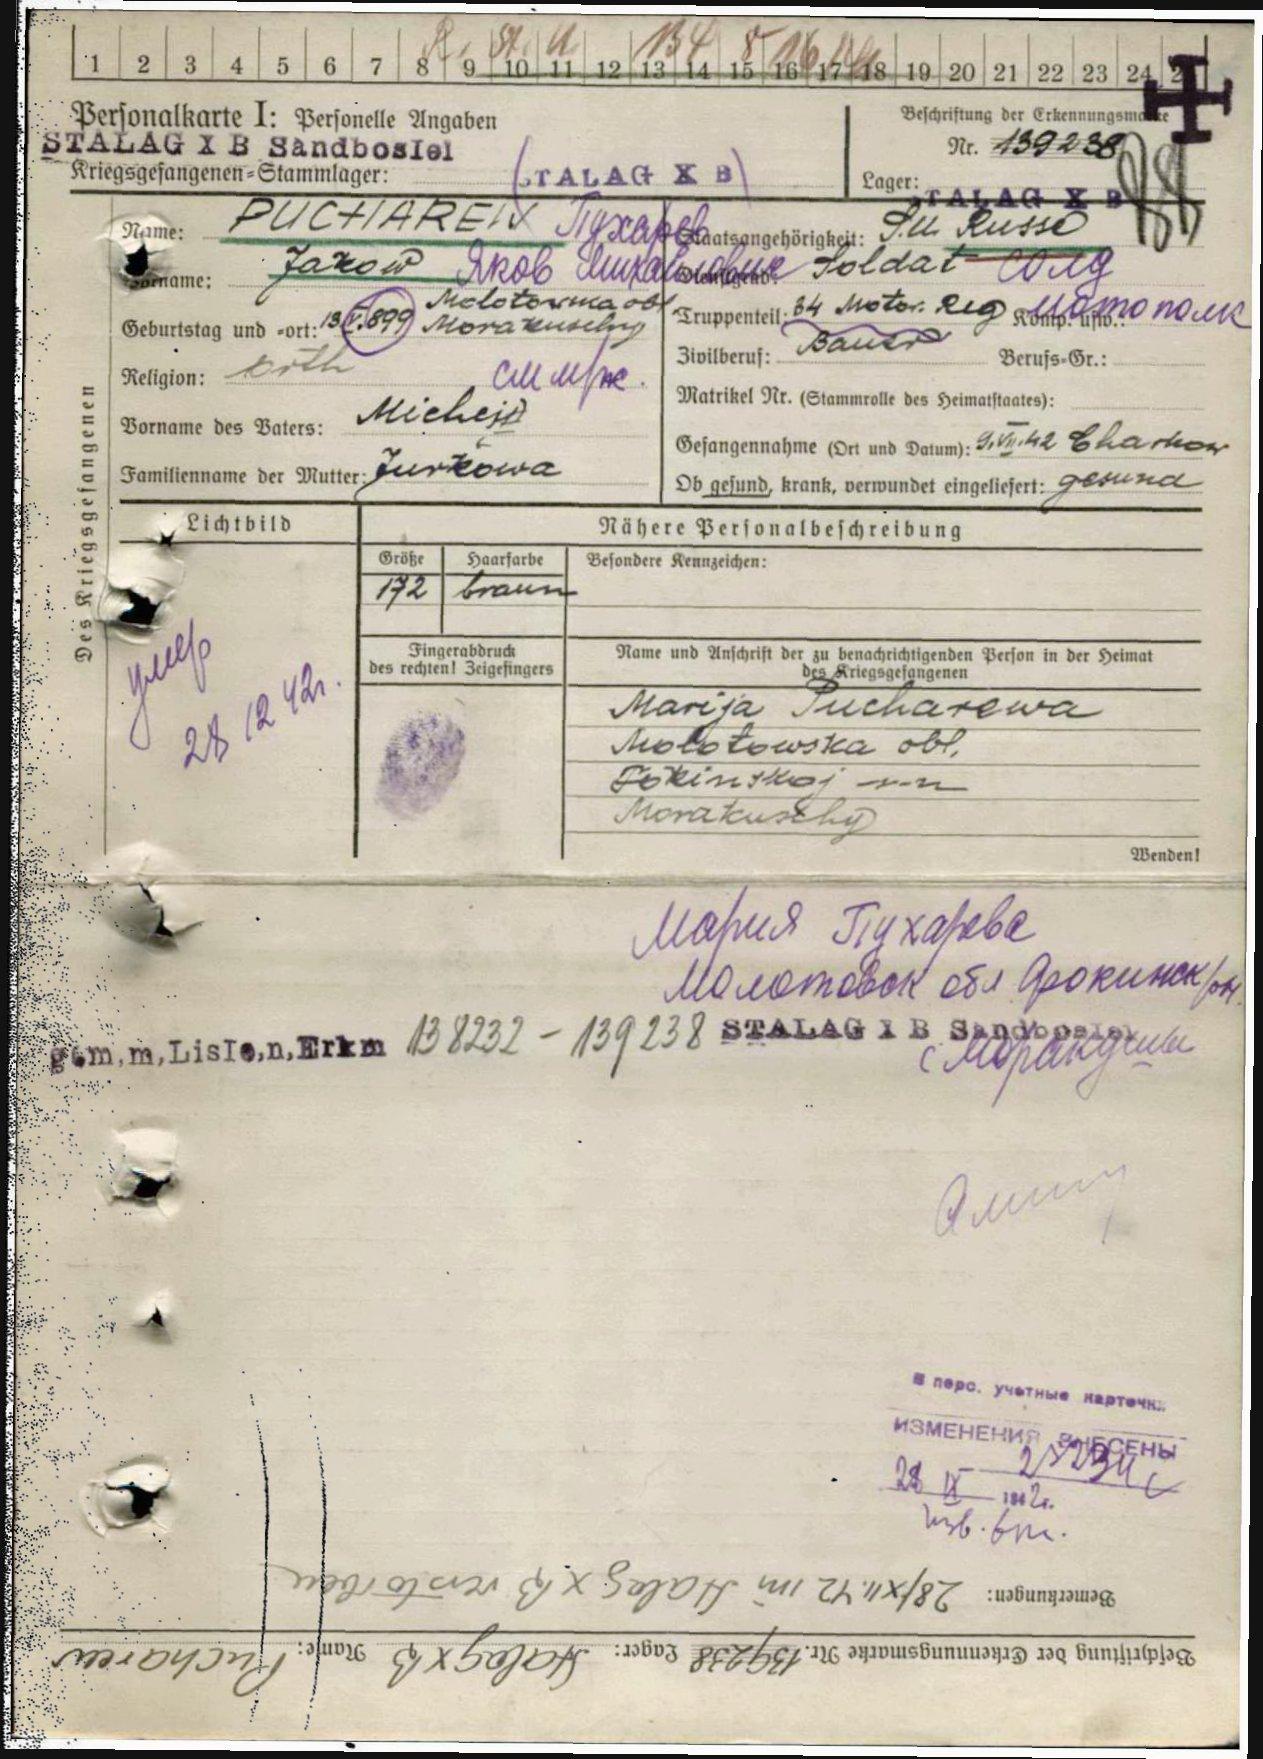 1 2 3 4 5 6 7 8 9 10 11 12 13 14 15 16 17 18 19 20 21 22 23 24
Personalkarte I: Personelle Angaben
STALAG X B Sandbostel
Kriegsgefangenen-Stammlager: TALAG X B
Beschriftung der Erkennungsmarke
Nr. 139238
Lager: TALAG X B
Des Kriegsgefangenen
Name: PUCHAREW Пухарев
Vorname: Jakow Яков Михайлович
Geburtstag und -ort: 13.V.899 Molotowska obl
Morakuschy
Religion: orth
Vorname des Vaters: Micheil
Familienname der Mutter: Jurkowa
Staatsangehörigkeit: S.U. Russe
Dienstgrad: Soldat солд
Truppenteil: 34 Motor. Reg Komp. usw.: мотополк
Zivilberuf: Bauer Berufs-Gr.:
Matrikel Nr. (Stammrolle des Heimatstaates):
Gefangennahme (Ort und Datum): 9.VII.42 Charkow
Ob gesund, krank, verwundet eingeliefert: gesund
Lichtbild
Nähere Personalbeschreibung
Größe Haarfarbe Besondere Kennzeichen:
172 braun
умер
28 12 42г.
Fingerabdruck
des rechten! Zeigefingers
Name und Anschrift der zu benachrichtigenden Person in der Heimat
des Kriegsgefangenen
Marija Pucharewa
Molotowska obl.
Fokinskoj r-n
Morakuschy
Wenden!
Мария Пухарева
Молотовск обл Фокинск/рн.
с Моракуши
gem.m.Liste.n.Erkm 138232 - 139238 STALAG X B Sandbostel
в перс. учетные карточки
ИЗМЕНЕНИЯ ВНЕСЕНЫ
28 IX 194
Bemerkungen: 28/XII.42 im Stalag X B verstorben
Beschriftung der Erkennungsmarke Nr. 139238 Lager: Stalag X B Name: Pucharew